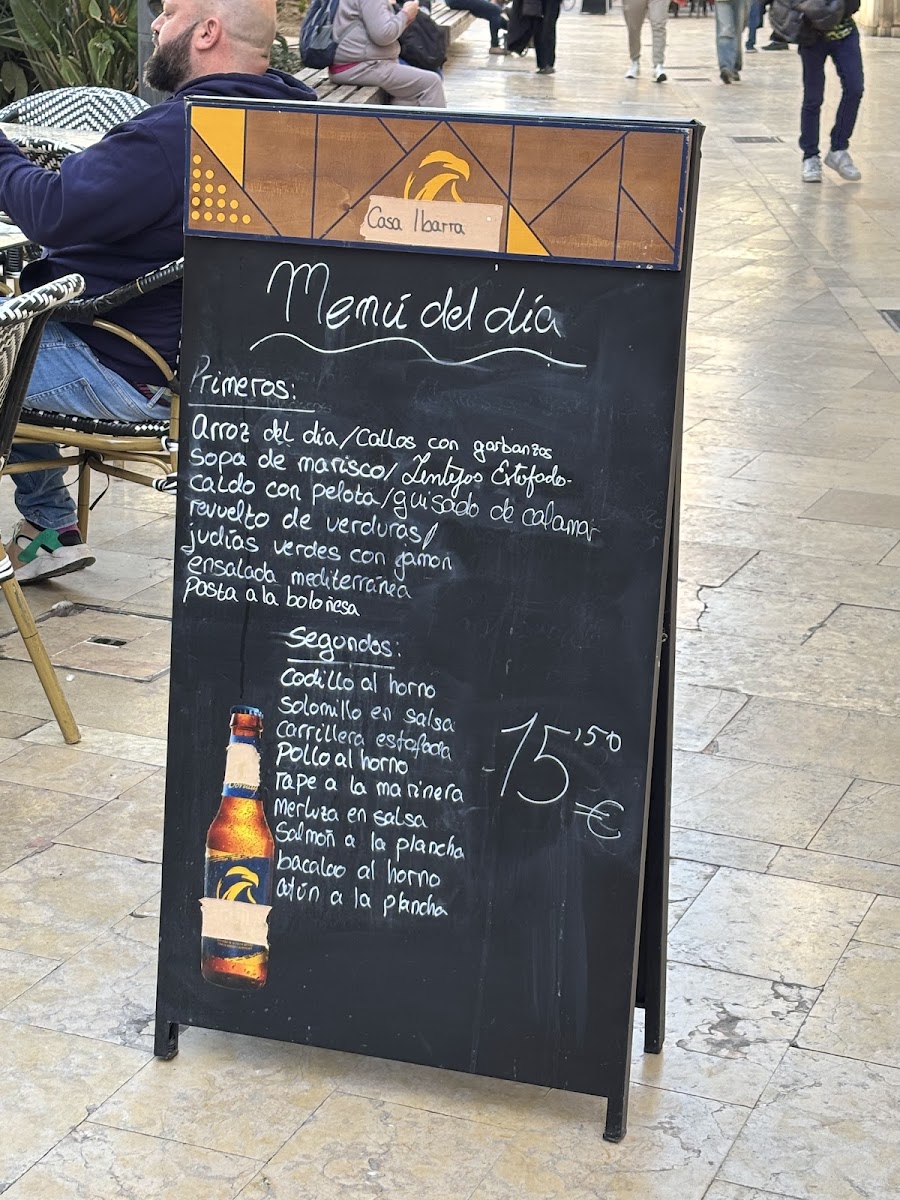 Casa Ibarra
Menú del día
Primeros:
Arroz del día/Callos con garbanzos
Sopa de marisco/Lentejas Estofado
caldo con pelota/guisado de calamar
revuelto de verduras/
judías verdes con jamon
ensalada mediterránea
Pasta a la boloñesa
Segondos:
Codillo al horno
Solomillo en salsa
carrillera estofada
Pollo al horno
rape a la marinera
merluza en salsa
Salmoñ a la plancha
bacalao al horno
atún a la plancha
15,50
€